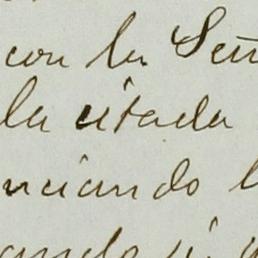 con la Señ
la citada
nciando l
ando